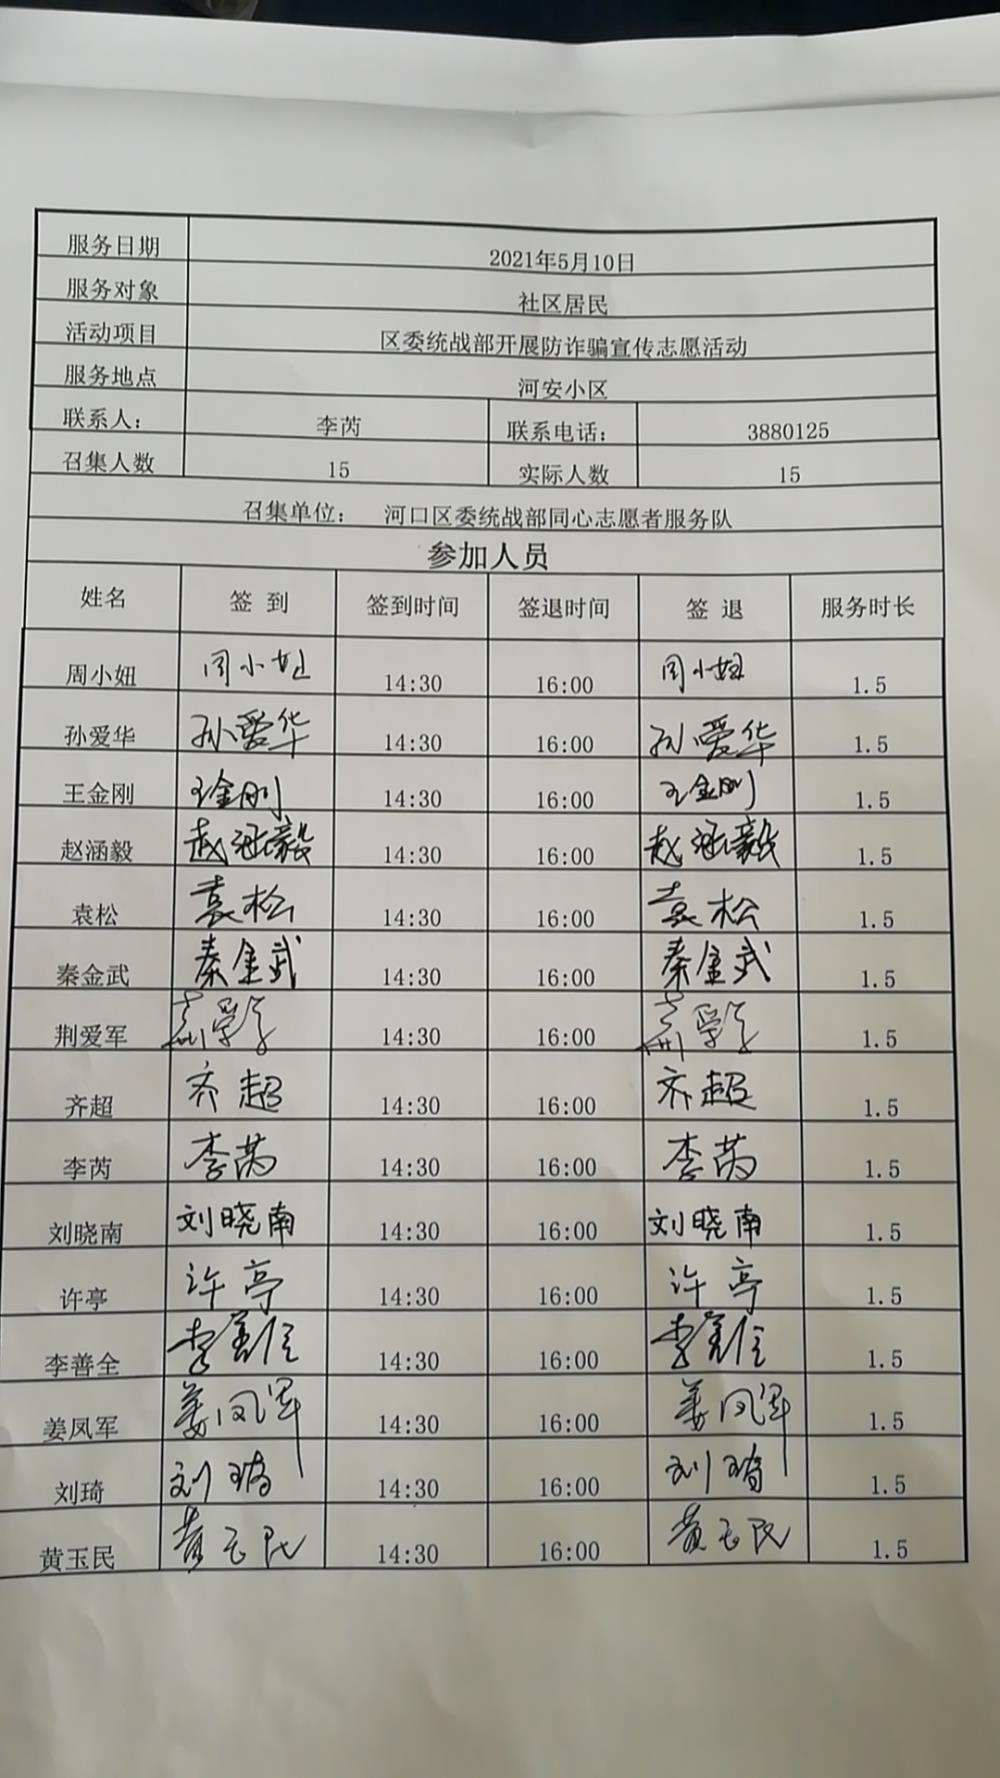 服务日期 2021年5月10日
服务对象 社区居民
活动项目 区委统战部开展防诈骗宣传志愿活动
服务地点 河安小区
联系人： 李芮 联系电话： 3880125
召集人数 15 实际人数 15
召集单位： 河口区委统战部同心志愿者服务队
参加人员
姓名 签 到 签到时间 签退时间 签 退 服务时长
周小妞 周小妞 14:30 16:00 周小妞 1.5
孙爱华 孙爱华 14:30 16:00 孙爱华 1.5
王金刚 王金刚 14:30 16:00 王金刚 1.5
赵涵毅 赵涵毅 14:30 16:00 赵涵毅 1.5
袁松 袁松 14:30 16:00 袁松 1.5
秦金武 秦金武 14:30 16:00 秦金武 1.5
荆爱军 荆爱军 14:30 16:00 荆爱军 1.5
齐超 齐超 14:30 16:00 齐超 1.5
李芮 李芮 14:30 16:00 李芮 1.5
刘晓南 刘晓南 14:30 16:00 刘晓南 1.5
许亭 许亭 14:30 16:00 许亭 1.5
李善全 李善全 14:30 16:00 李善全 1.5
姜凤军 姜凤军 14:30 16:00 姜凤军 1.5
刘琦 刘琦 14:30 16:00 刘琦 1.5
黄玉民 黄玉民 14:30 16:00 黄玉民 1.5